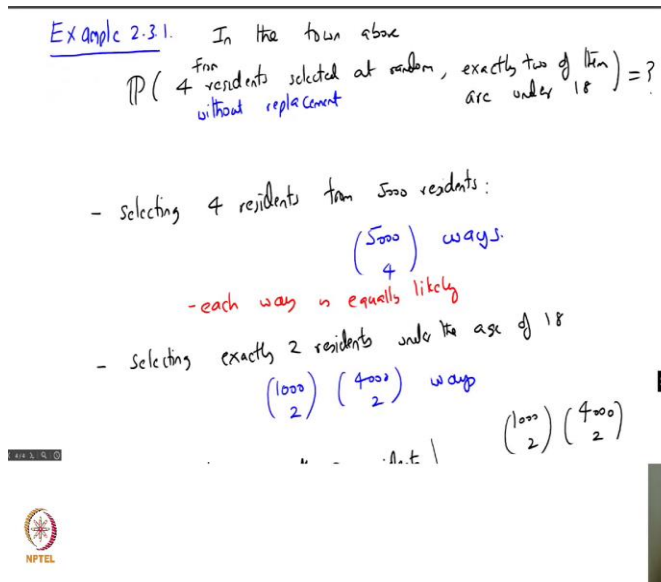 Example 2.3.1. In the town above
from
ℙ( 4 residents selected at random, exactly two of them ) = ?
without replacement are under 18
- selecting 4 residents from 5000 residents:
(5000 4) ways.
- each way is equally likely
- selecting exactly 2 residents under the age of 18
(1000 2) (4000 2) ways
(1000 2) (4000 2)
NPTEL